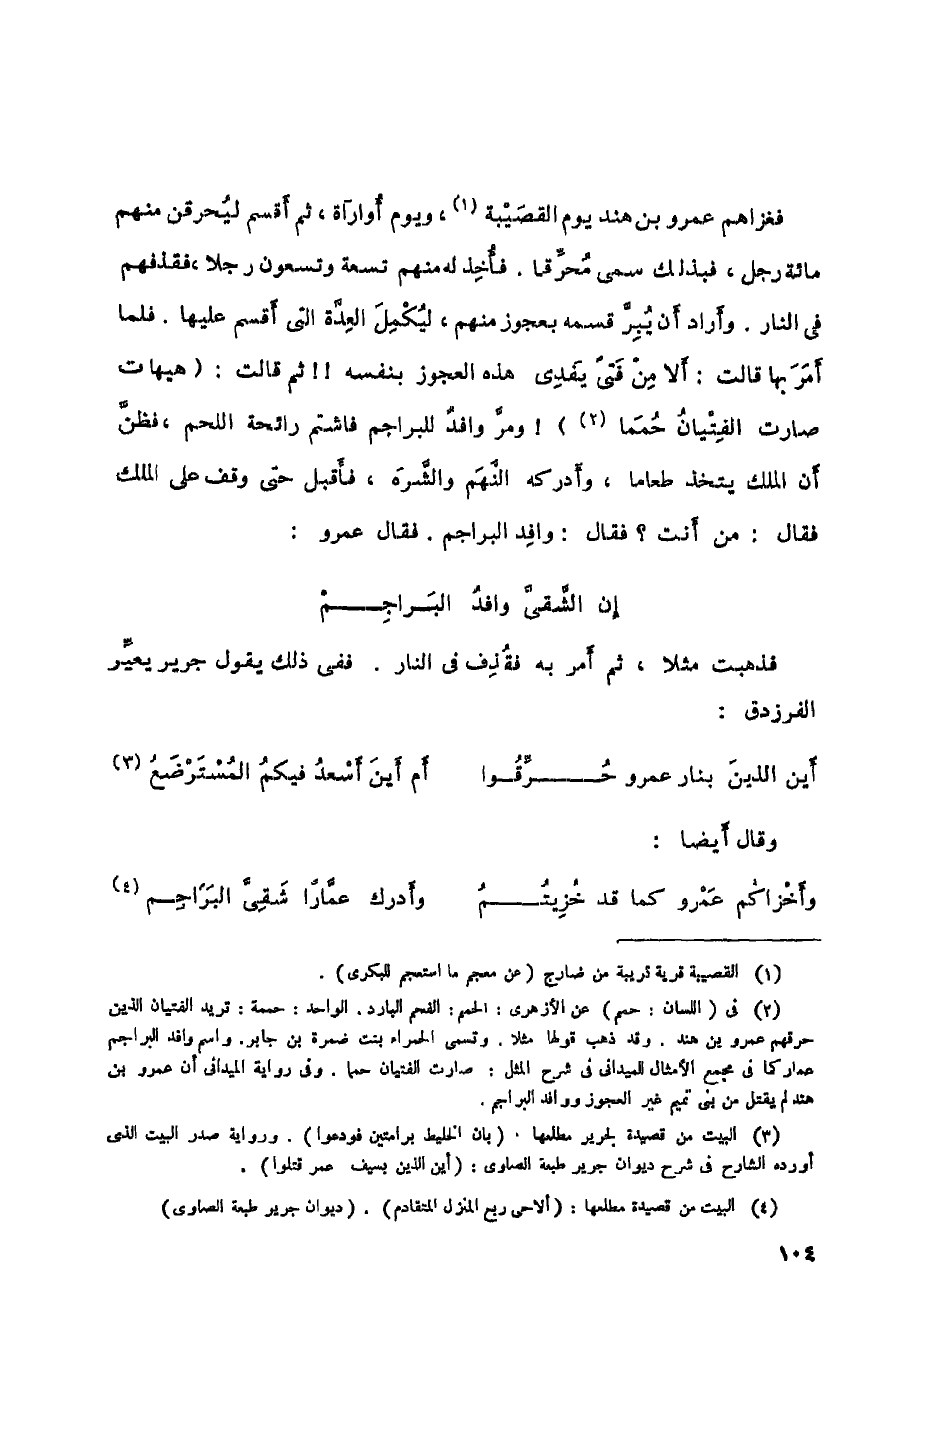 فغزاهم عمرو بن هند يوم القصَيْبة (١) ، ويوم أُوارَآة ، ثم أَقسم ليُحرقن منهم
مائة رجل ، فبذلك سمى مُحرِّقا . فأُخِذ له منهم تسعة وتسعون رجلا ، فقذفهم
فى النار . وأَراد أَن يُبِرَّ قسمه بعجوز منهم ، ليُكْمِلَ العِدَّة التى أَقسم عليها . فلما
أَمَرَ بها قالت : أَلا مِنْ فَتىً يفدِى هذه العجوز بنفسه !! ثم قالت : ( هيهات
صارت الفِتْيانُ حُمَما (٢) ) ! ومرَّ وافدٌ للبراجم فاشتم رائحة اللحم ، فظنَّ
أَن الملك يتخذ طعاما ، وأَدركه النَّهَم والشَّرَه ، فأَقبل حتى وقف على الملك
فقال : من أَنت ؟ فقال : وافِد البراجم . فقال عمرو :
إن الشَّقىَّ وافدُ البَـراجِـــمْ
فذهبت مثلا ، ثم أَمر به فقُذِف فى النار . ففى ذلك يقول جرير يعيِّر
الفرزدق :
أَين الذينَ بنار عمرو حُــــرِّقُـوا أم أَينَ أَسْعدُ فيكمُ المُسْتَرْضَعُ (٣)
وقال أَيضا :
وأَخْزاكُم عَمْرو كما قد خُزِيتُــــمُ وأَدرك عمَّارًا شَقِىَّ البَرَاجِـم (٤)
(١) القصيبة قرية قريبة من ضارج (عن معجم ما استعجم للبكرى) .
(٢) فى ( اللسان : حمم) عن الأزهرى : الحمم : الفحم البارد . الواحد : حممة : تريد الفتيان الذين
حرقهم عمرو بن هند . وقد ذهب قولها مثلا . وتسمى الحمراء بنت ضمرة بن جابر . واسم وافد البراجم
عمار كما فى مجمع الأمثال للميدانى فى شرح المثل : صارت الفتيان حمما . وفى رواية الميدانى أن عمرو بن
هند لم يقتل من بنى تميم غير العجوز ووافد البراجم .
(٣) البيت من قصيدة لجرير مطلعها . (بان الخليط برامتين فودعوا) . ورواية صدر البيت الذى
أورده الشارح فى شرح ديوان جرير طبعة الصاوى : (أين الذين بسيف عمر قتلوا) .
(٤) البيت من قصيدة مطلعها : (ألا حى ربع المنزل المتقادم) . (ديوان جرير طبعة الصاوى)
١٠٤